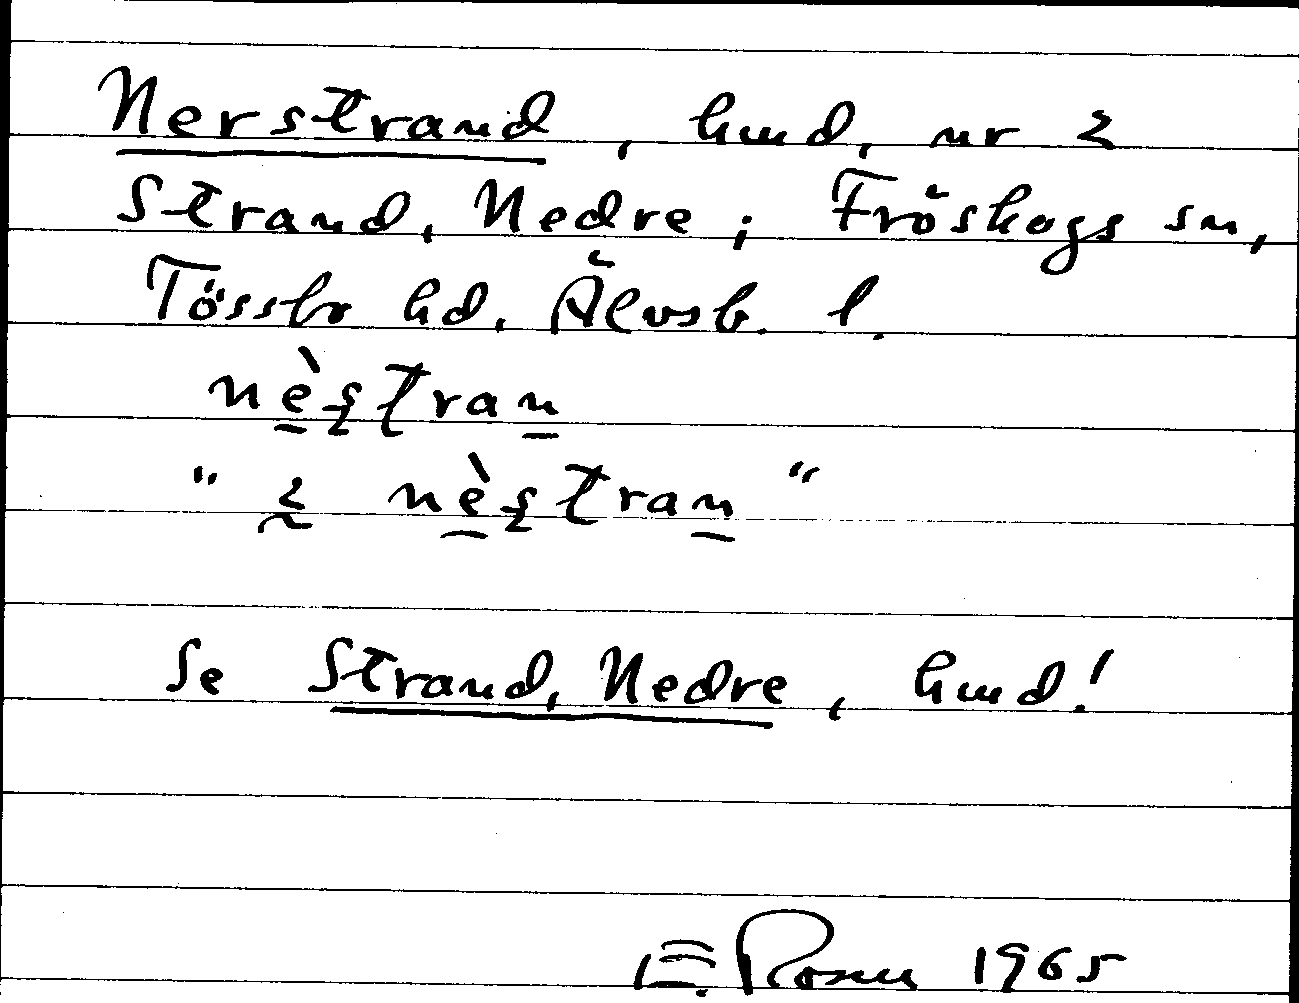 Nerstrand, hmd, nr 2
Strand, Nedre; Fröskogs sn,
Tössbo hd. Älvsb. l.
nèʂtran
"2 nèʂtran"
Se Strand, Nedre, hmd!
E. Rosén 1965